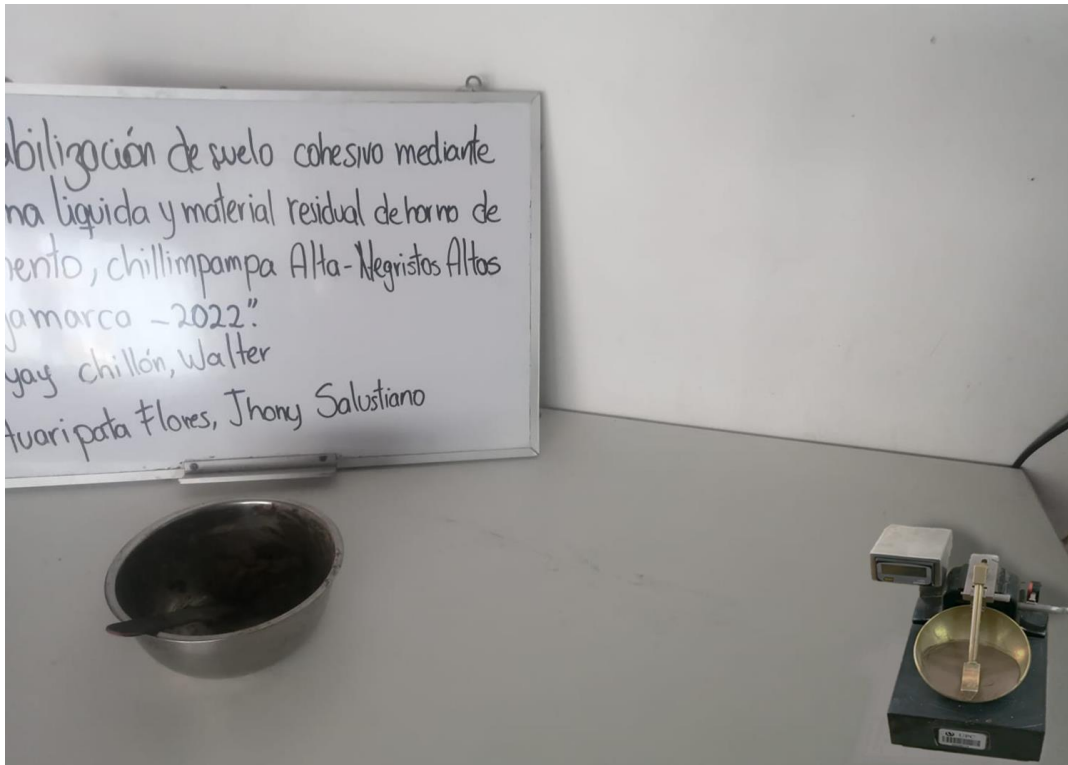 bilización de suelo cohesivo mediante
na liquida y material residual de horno de
ento, chillimpampa Alta-Negritos Altos
amarca -2022".
yay chillón, Walter
Huaripata Flores, Jhony Salustiano
UPC